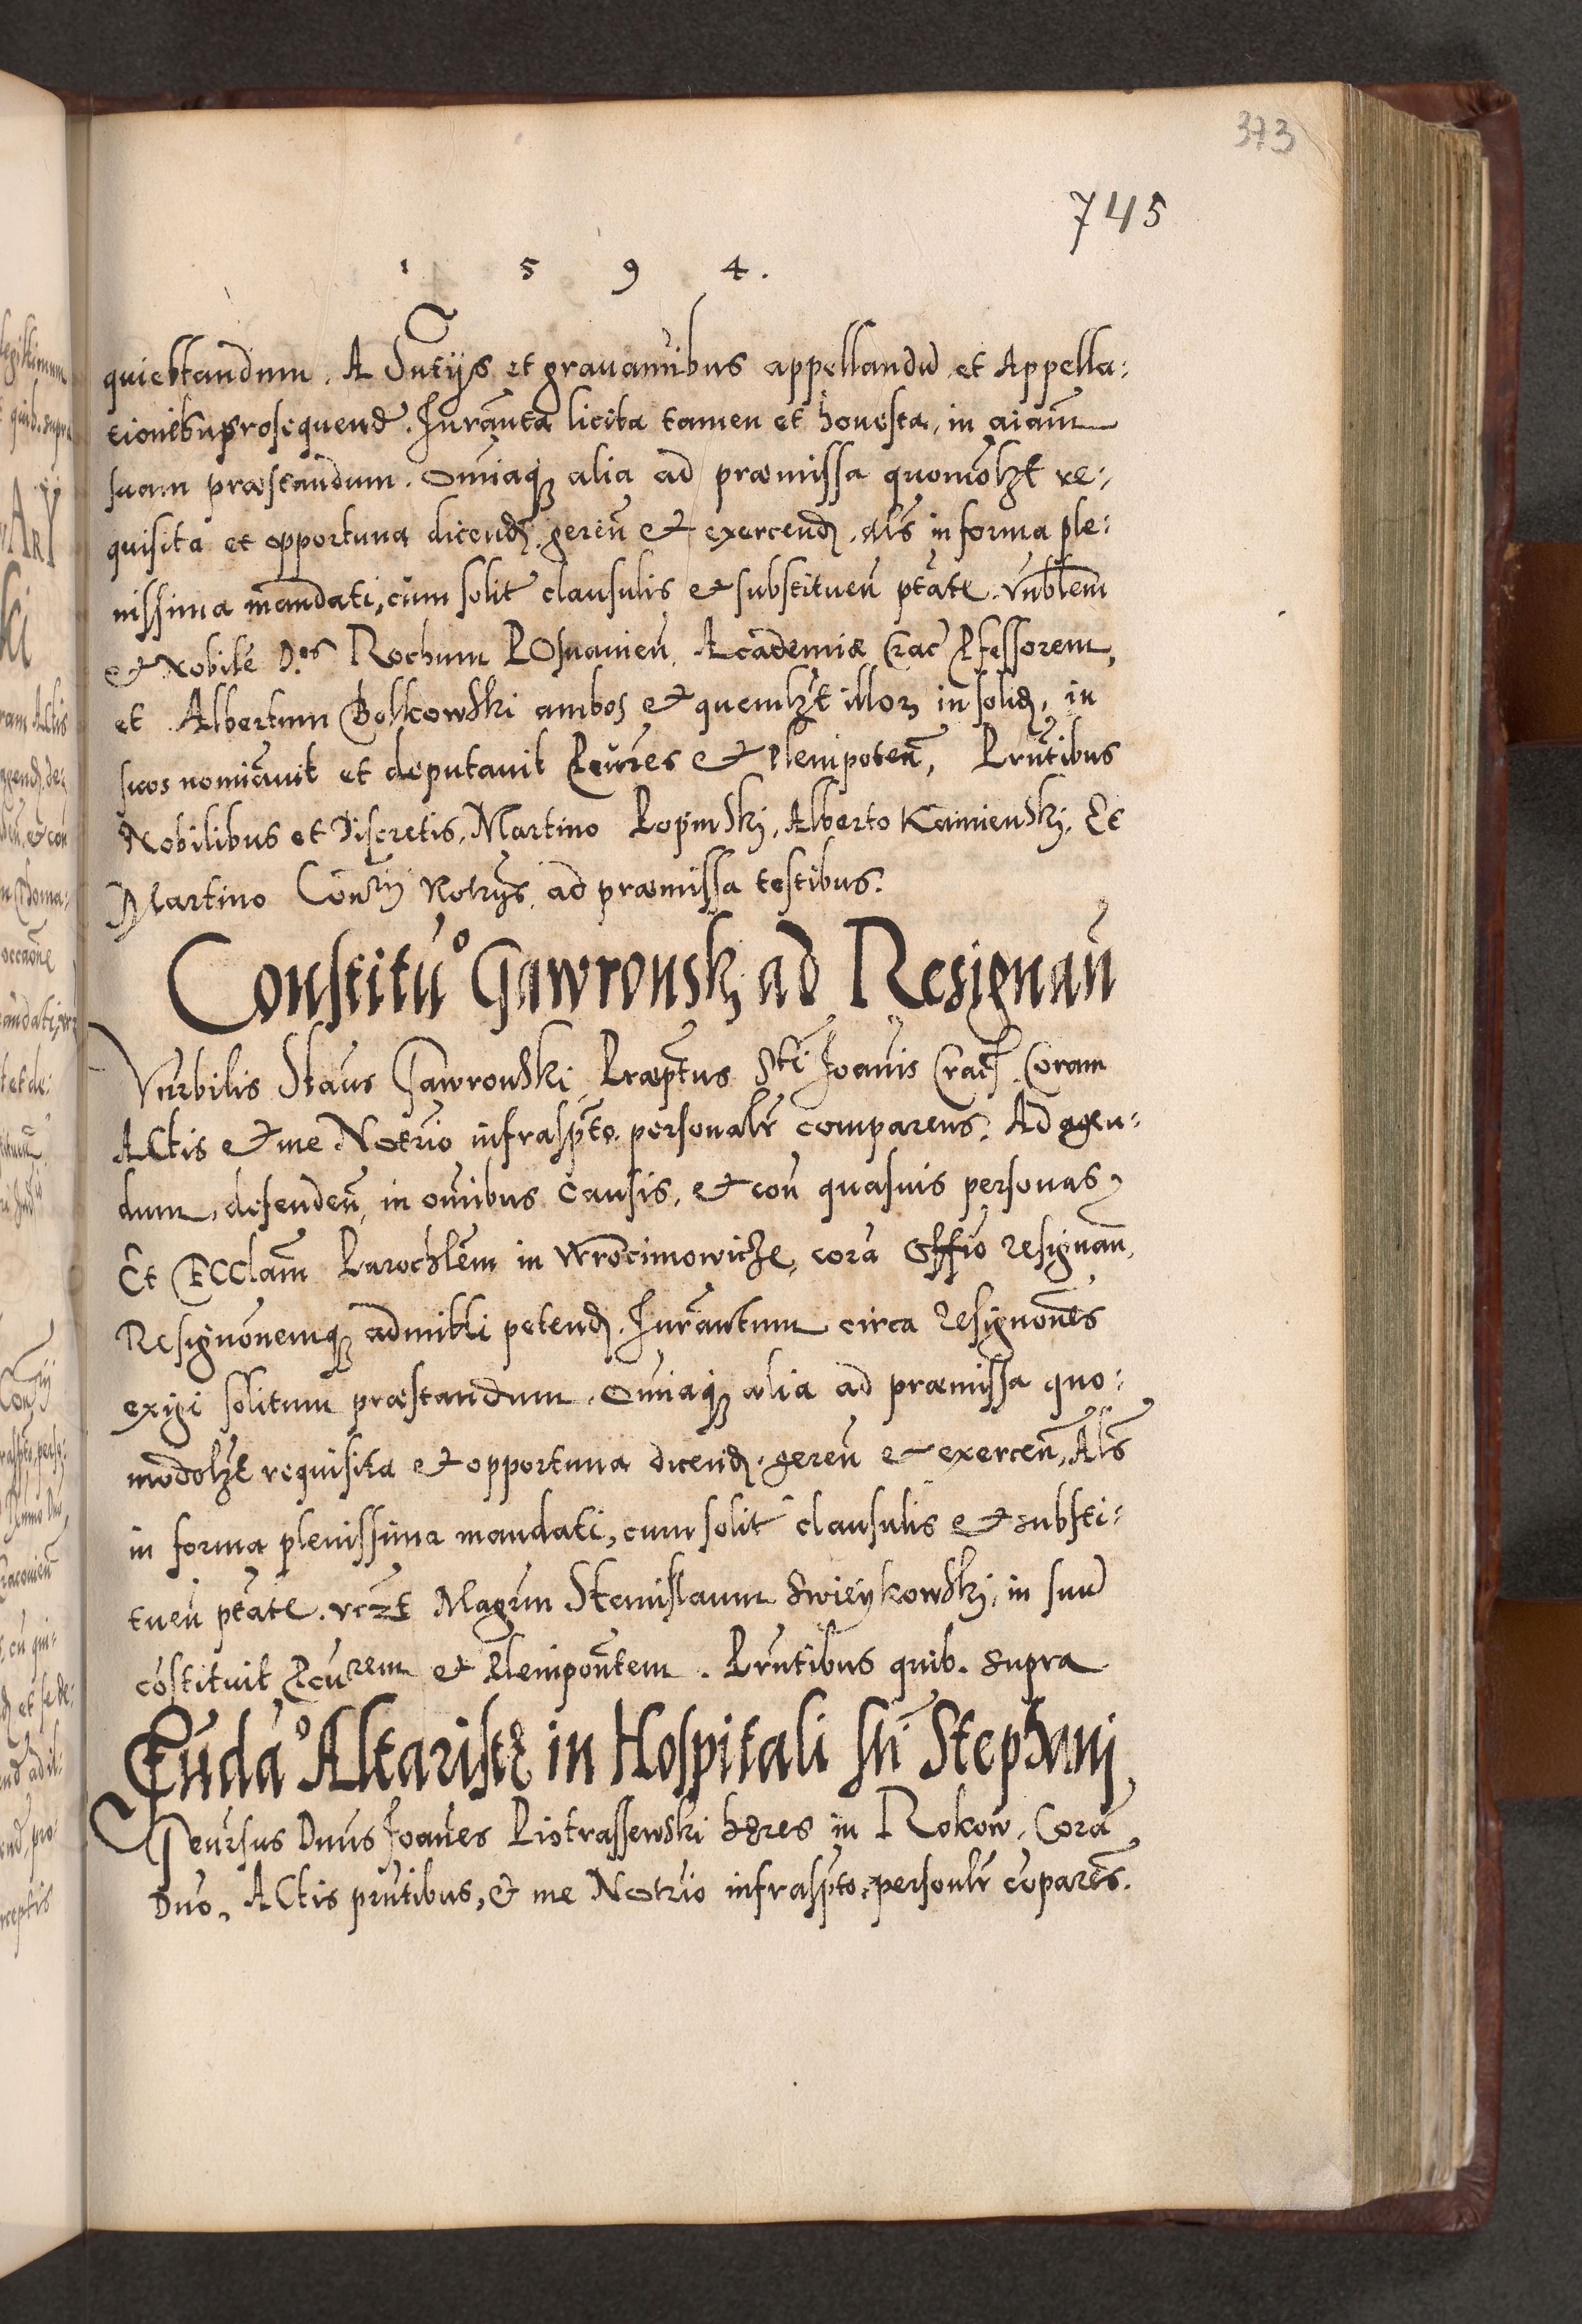 373
745
1 5 9 4.
quiettandum. A Sntijs et gravaminibus appellandũ et Appella:
tionibus prosequend. Jurãnta licita tamen et honesta, in aiam
suam præstandum. Omniaq; alia ad præmissa quomolzt re:
quisita et opportuna dicend. geren̄ et exercend. als in forma ple:
nissima mandati, cum solit clausulis et substituen̄ ptãte. Vnblem
et Nobilẽ D.os Rochum POsnanien̄. Academiæ Crac Pfessorem,
et Albertum Bolkowski ambos et quemlzt illor in solid, in
suos nomiãvit et deputavit Pcũres et Plenipoten̄, Prñtibus
Nobilibus et Discretis, Martino Ropinskj, Alberto Kamienskj, Et
Martino Con̄rij Notrijs, ad præmissa testibus.
Constitũo Gawronsk ad Resignan̄
Vnrbilis Staus Gawronski Præptus Sti Joañis Crac. Coram
ACtis et me Notrio infrasp̃to personalr comparens. Ad agen:
dum, defenden̄, in om̃ibus causis, et con quasuis personas
Et ECClam Parochlem in Wrocimowicze, corã Offio resignan̄,
Resignonemq; admitti petend. Jurãntum circa resignones
exigi solitum præstandum. Omniaq; alia ad præmissa quo:
modolzt requisita et opportuna dicend. geren̄ et exercen̄, Als
in forma plenissima mandati, cum solit clausulis et substi:
tuen̄ ptãte. vczt Magrm Stanislaum Swieykowskj, in suũ
cõstituit Pcurem et Plenipontem. Prñtibus quib. supra
Fũdao Altaristæ in Hospitali Sti Stephani
Genrsus Dnus Joañes Piotrassewski hæres in Rokow, Corã
Dno, ACtis prñtibus, & me Notrio infrasp̃to, personlr cõparẽs.